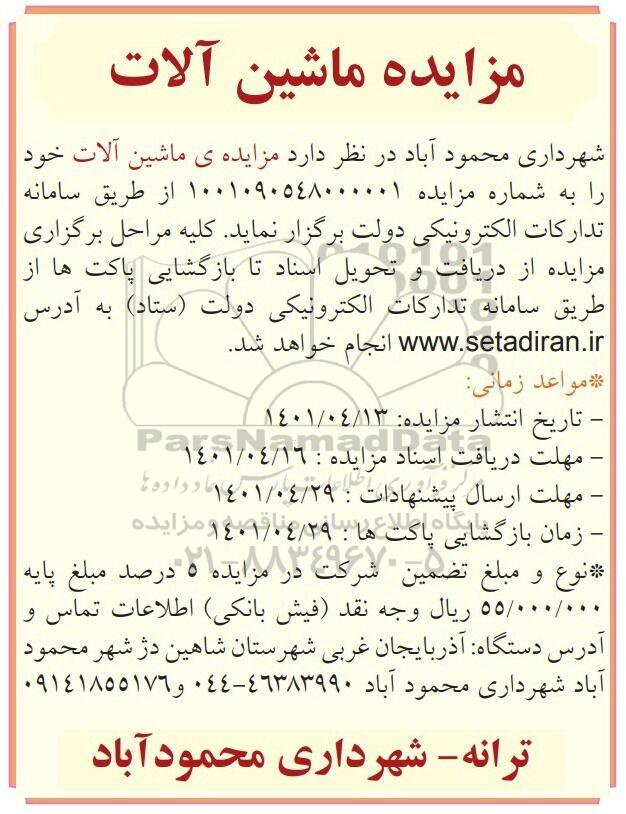 مزایده ماشین آلات
شهرداری محمود آباد در نظر دارد مزایده ی ماشین آلات خود
را به شماره مزایده ۱۰۰۱۰۹۰۵۴۸۰۰۰۰۰۱ از طریق سامانه
تدارکات الکترونیکی دولت برگزار نماید. کلیه مراحل برگزاری
مزایده از دریافت و تحویل اسناد تا بازگشایی پاکت ها از
طریق سامانه تدارکات الکترونیکی دولت (ستاد) به آدرس
www.setadiran.ir انجام خواهد شد.
*مواعد زمانی:
- تاریخ انتشار مزایده: ۱۴۰۱/۰۴/۱۳
- مهلت دریافت اسناد مزایده : ۱۴۰۱/۰۴/۱۶
- مهلت ارسال پیشنهادات : ۱۴۰۱/۰۴/۲۹
- زمان بازگشایی پاکت ها : ۱۴۰۱/۰۴/۲۹
*نوع و مبلغ تضمین شرکت در مزایده ۵ درصد مبلغ پایه
۵۵/۰۰۰/۰۰۰ ریال وجه نقد (فیش بانکی) اطلاعات تماس و
آدرس دستگاه: آذربایجان غربی شهرستان شاهین دژ شهر محمود
آباد شهرداری محمود آباد ۴۶۳۸۳۹۹۰-۰۴۴ و۰۹۱۴۱۸۵۵۱۷۶
ترانه- شهرداری محمودآباد
ParsNamadData
پایگاه اطلاع رسانی مناقصه و مزایده
۰۲۱-۸۸۳۴۹۶۷۰-۵